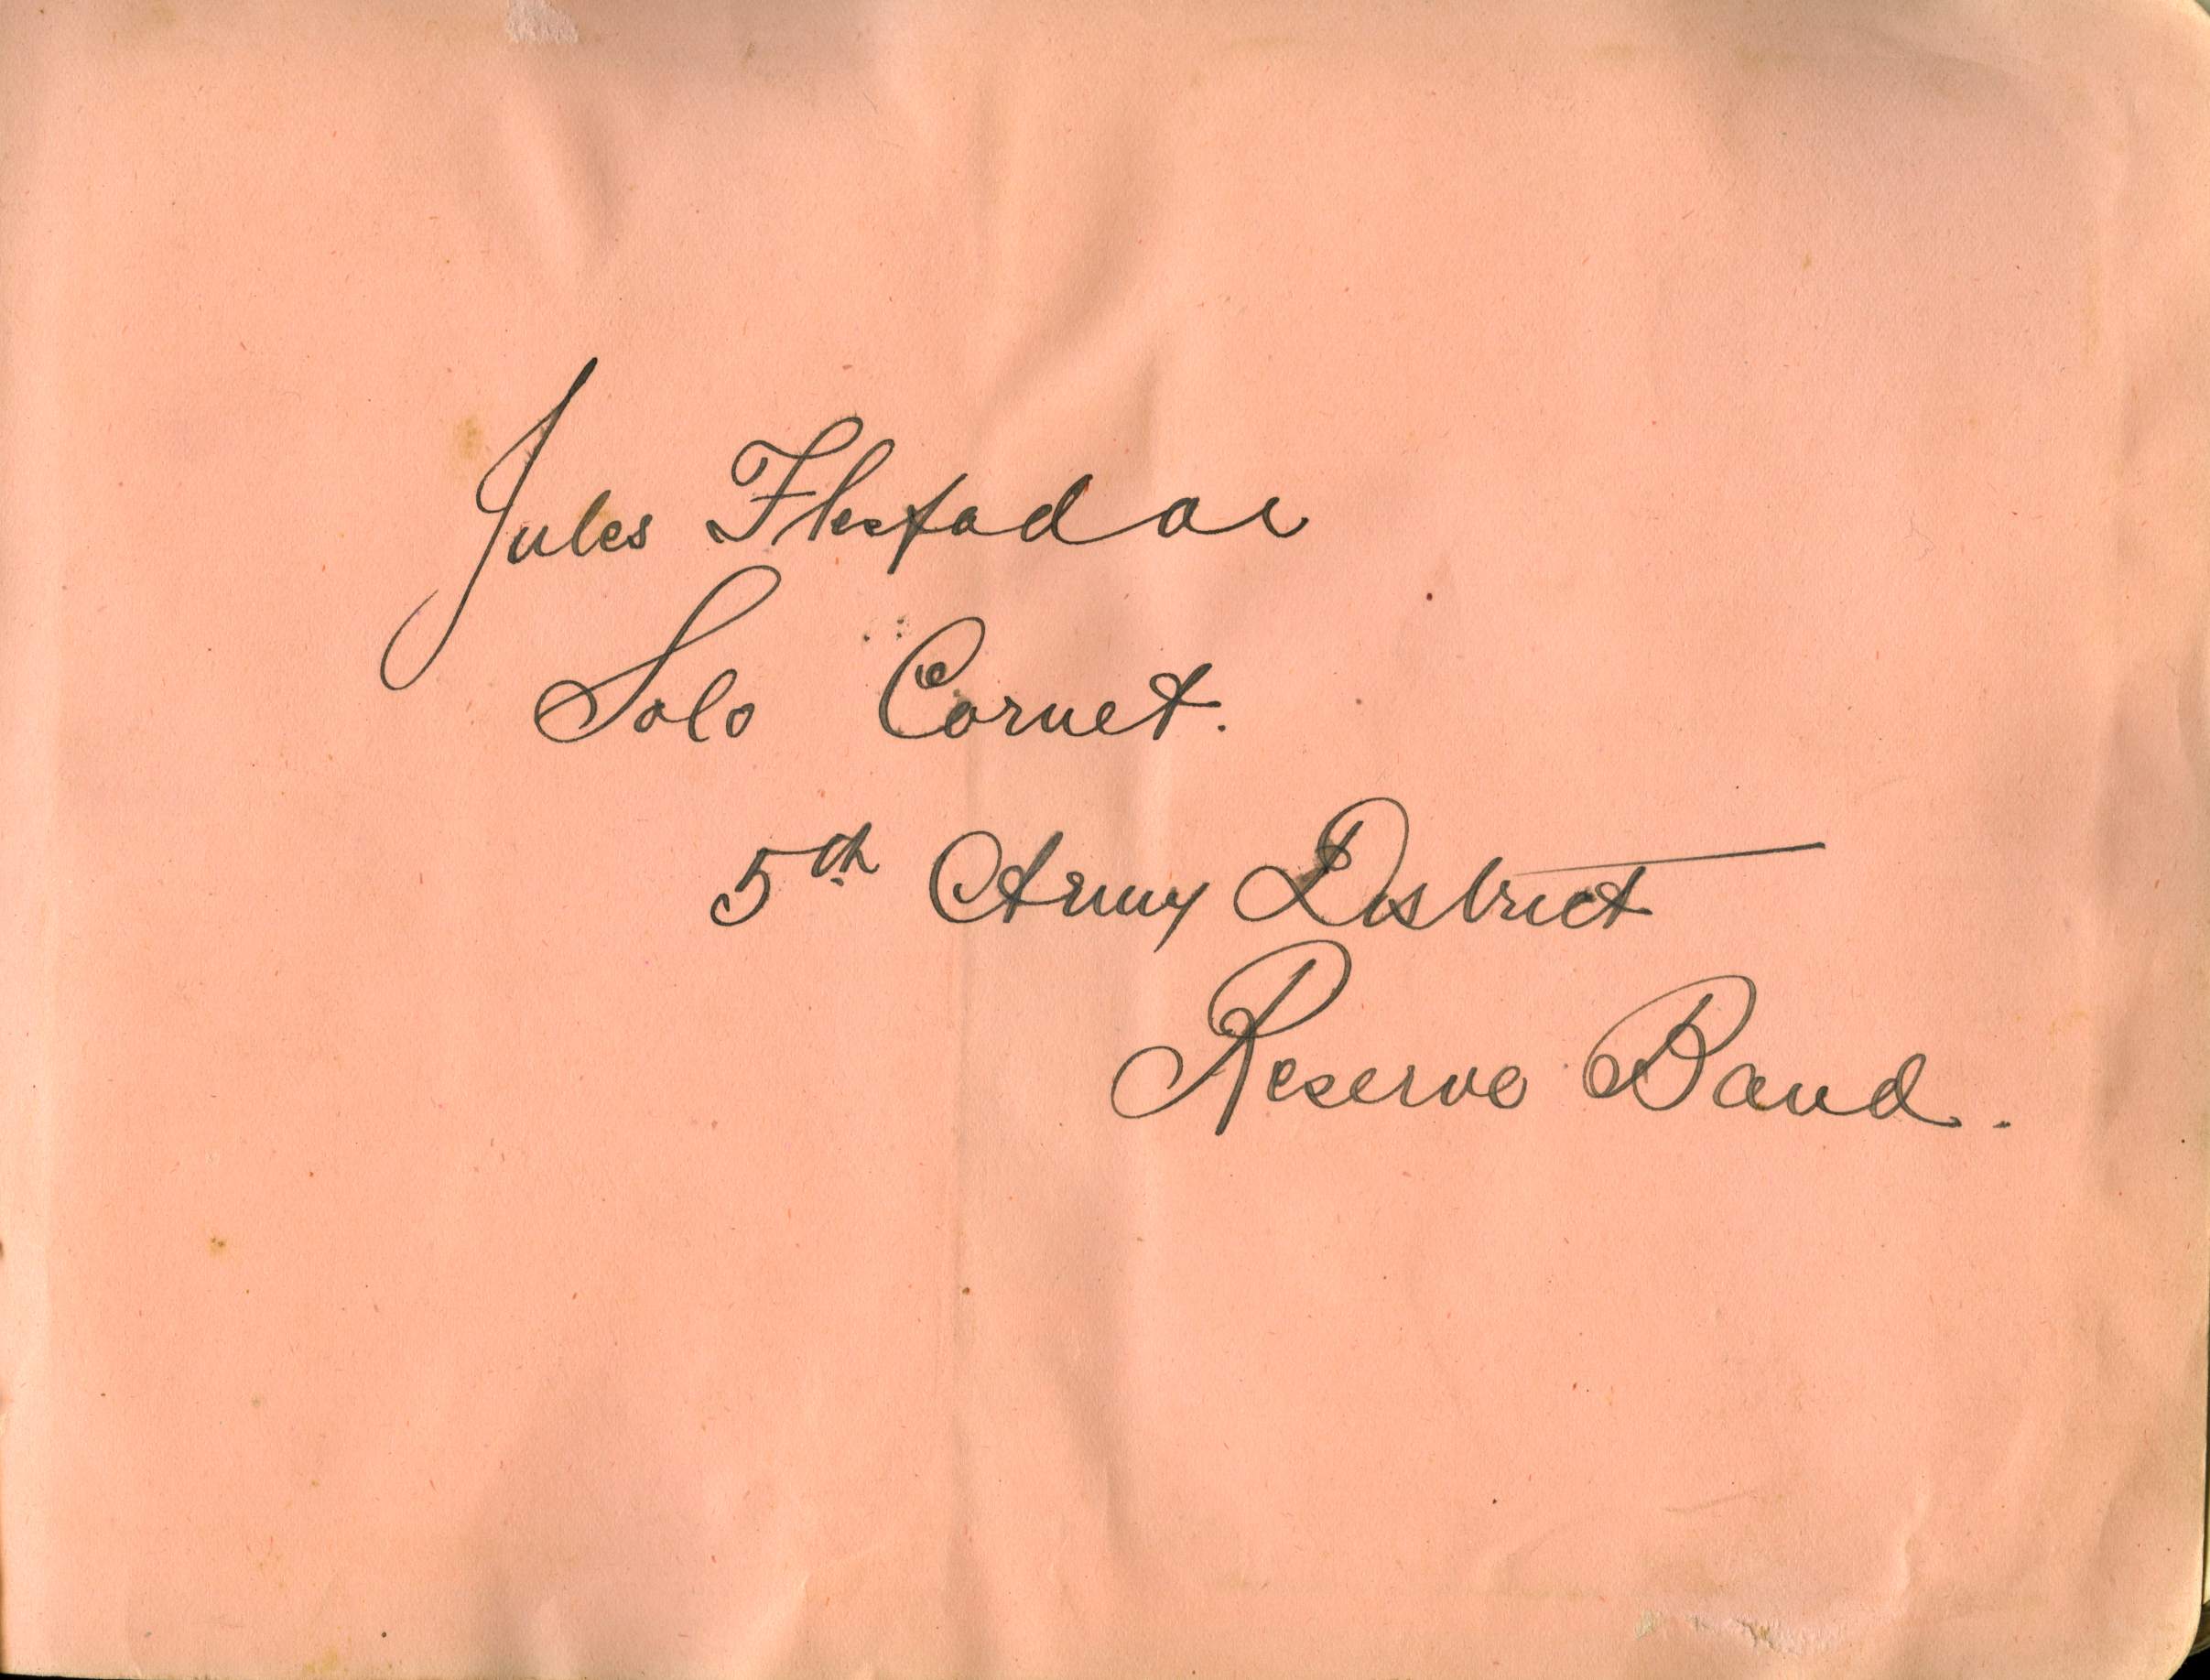 Jules
Solo Cornet.
5th Army District
Reserve Band.